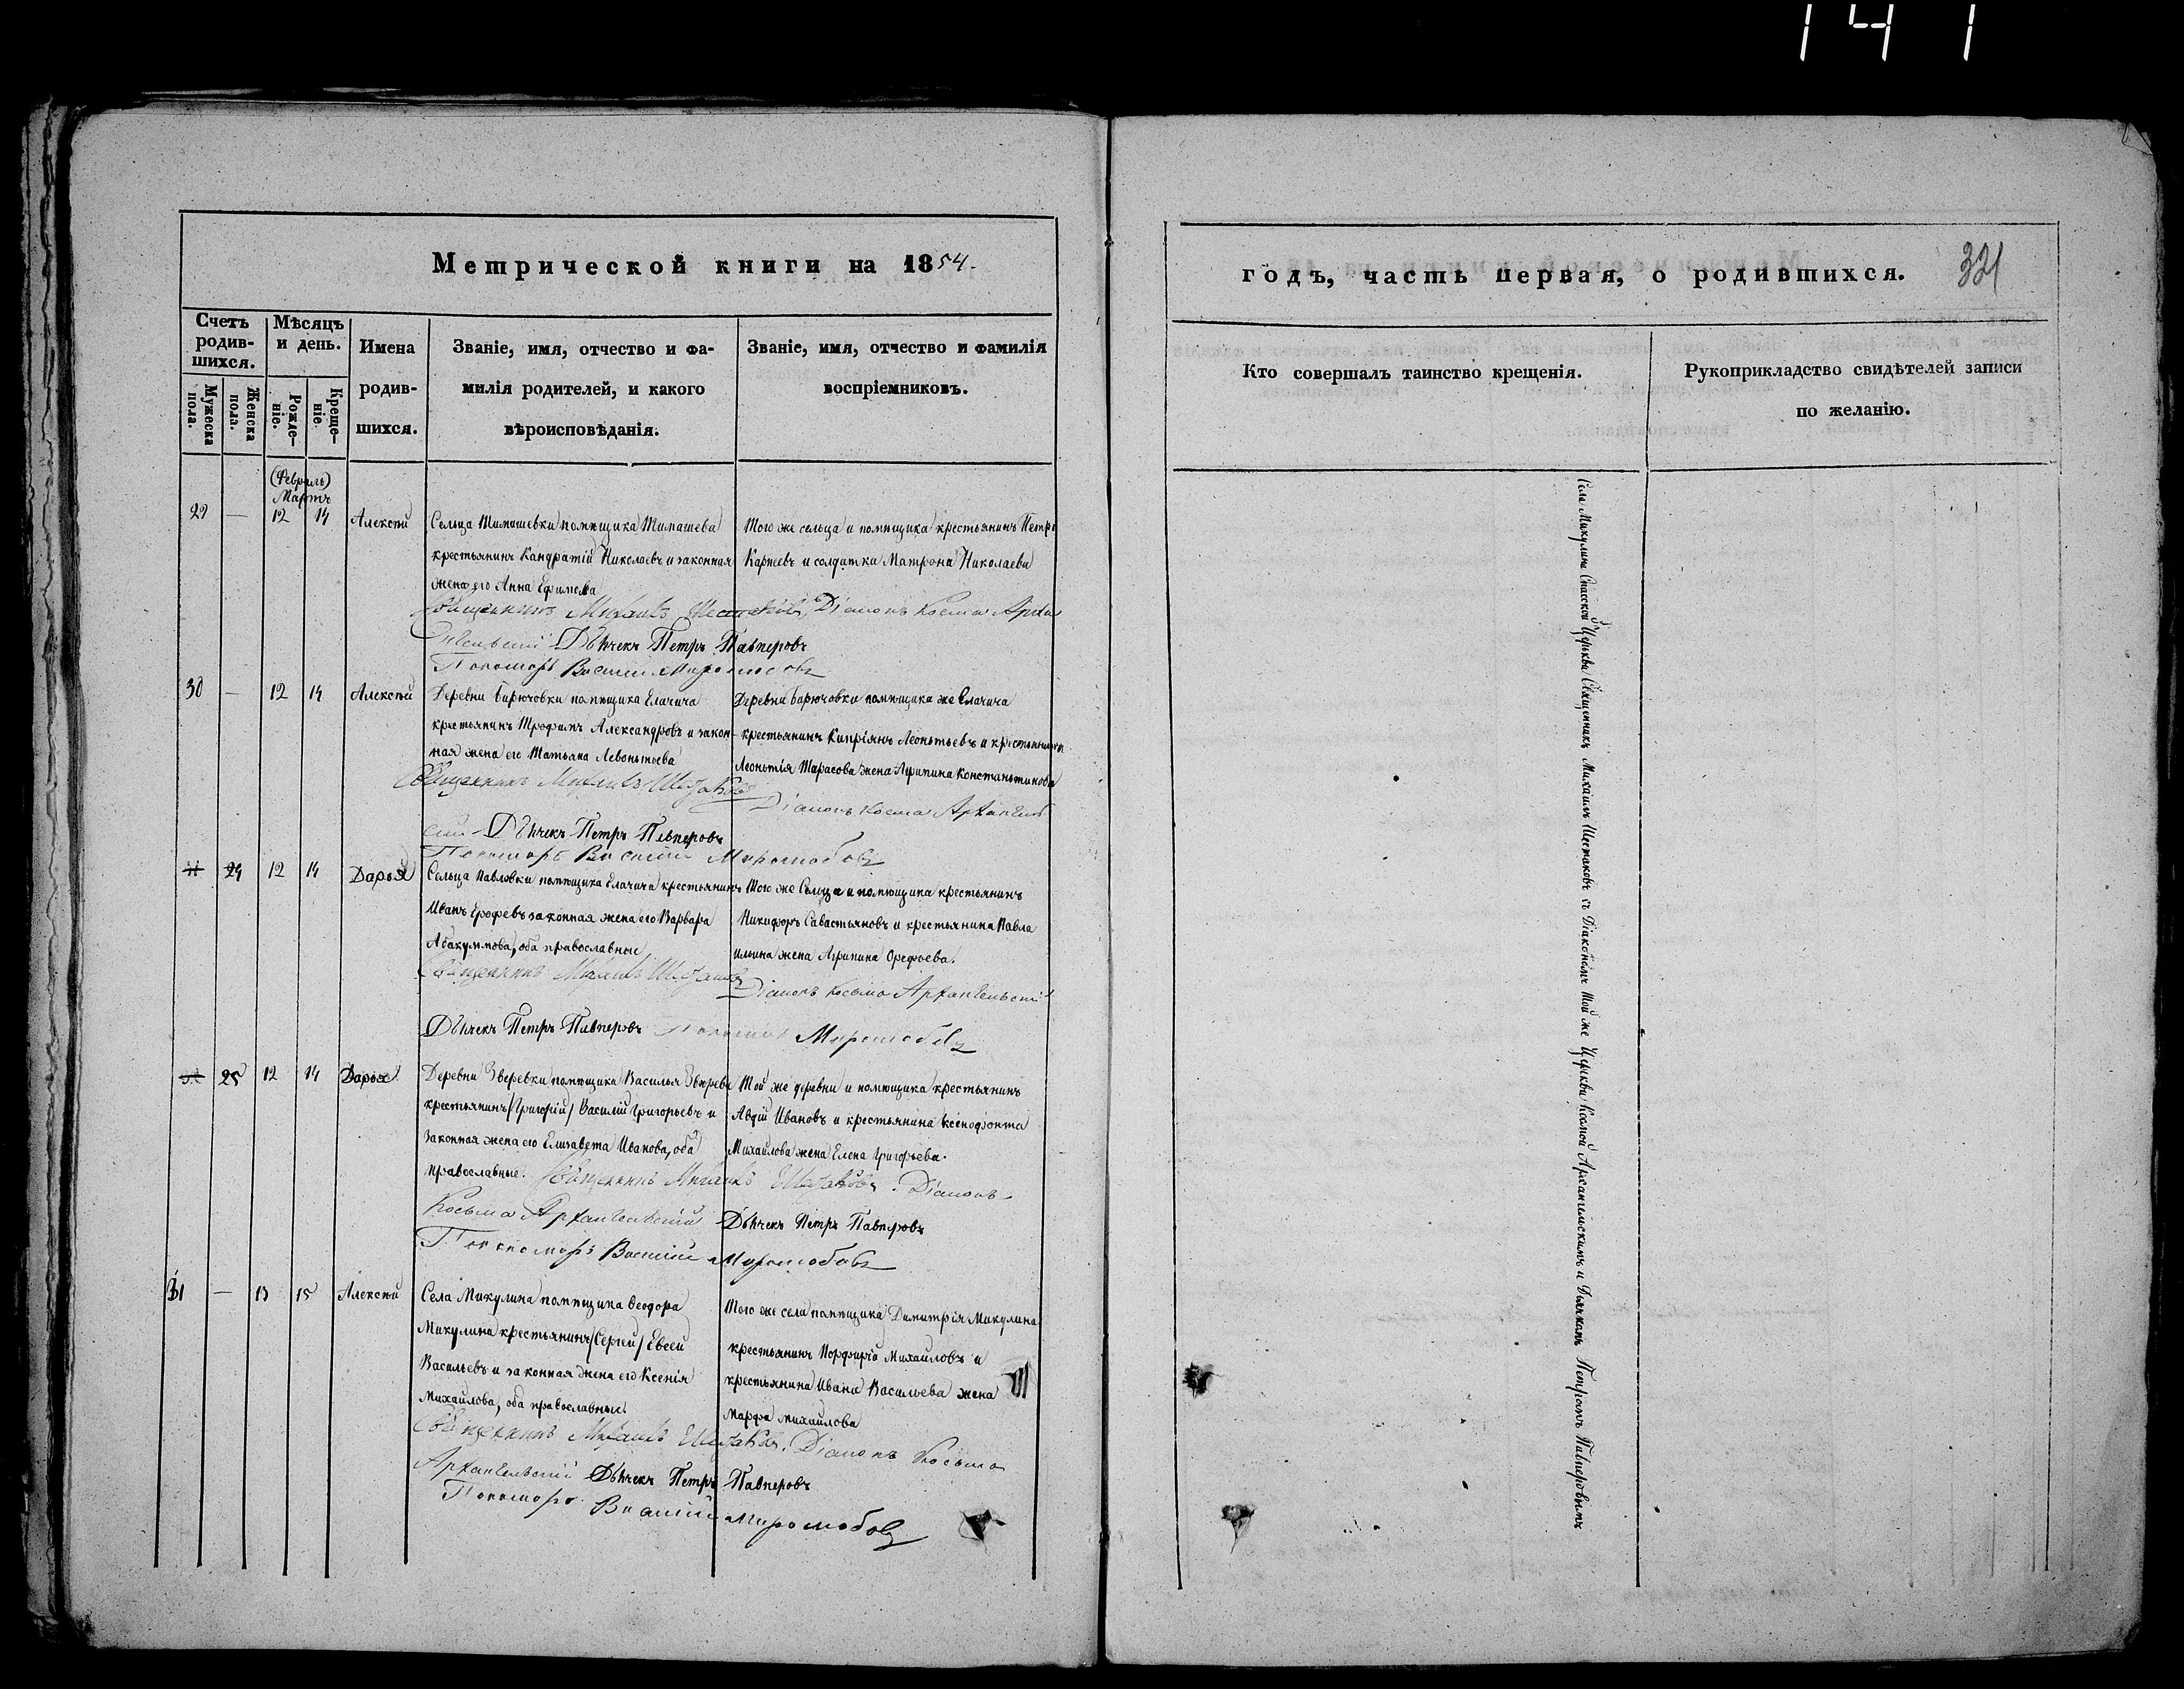 141
Метрической книги на 1854.
Счетъ родив-шихся.
Мѣсяцъ и день.
Имена родив-шихся.
Званіе, имя, отчество и фа-
милія родителей, и какого
вѣроисповѣданія.
Званіе, имя, отчество и фамилія
воспріемниковъ.
Мужеска пола.
Женска пола.
Рожде-ніе.
Креще-ніе.
(Февраль)
Мартъ
29 — 12 14 Алексѣй
Сельца Тимашевки помѣщика Тимашева
крестьянинъ Кандратій Николаевъ и законная
жена его Анна Ефимова
Того же сельца и помѣщика крестьянинъ Петръ
Карпеевъ и солдатка Матрона Николаева
Священникъ Михаилъ Шестаковъ, Діаконъ Косма Арха
нгельскій Дьячекъ Петръ Павперовъ
Пономарь Василій Миролюбовъ
30 — 12 14 Алексѣй
Деревни Бирючовки помѣщика Елачича
крестьянинъ Трофимъ Александровъ и закон-
ная жена его Татьяна Левонтьева
Деревни Бирючовки помѣщика же Елачича
крестьянинъ Кипріянъ Леонтьевъ и крестьянина
Леонтія Тарасова жена Агрипина Константинова
Священникъ Михаилъ Шестаковъ
Діаконъ Косма Архангель
скій Дьячекъ Петръ Павперовъ
Пономарь Василій Миролюбовъ
24 12 14 Дарья
Сельца Павловки помѣщика Елачича крестьянинъ
Иванъ Ерофеевъ законная жена его Варвара
Абакумова, оба православные
Того же Сельца и помѣщика крестьянинъ
Никифоръ Савастьяновъ и крестьянина Павла
Ильина жена Агрипина Орефьева.
Священникъ Михаилъ Шестаковъ
Діаконъ Косьма Архангельскій
Дьячекъ Петръ Павперовъ Пономарь Миролюбовъ
25 12 14 Дарья
Деревни Зверевки помѣщика Василья Звѣрева
крестьянинъ /Григорій/ Василій Григорьевъ и
Законная жена его Елизавета Иванова, оба
православные.
Той же деревни и помѣщика крестьянинъ
Авдій Ивановъ и крестьянина Ксенофонта
Михайлова жена Елена Григорьева.
Священникъ Михаилъ Шестаковъ. Діаконъ
Косьма Архангельскій Дьячекъ Петръ Павперовъ
Пономарь Василій Миролюбовъ
31 — 13 15 Алексѣй
Села Микулина помѣщика Ѳеодора
Микулина крестьянинъ /Сергей/ Евсей
Васильевъ и законная жена его Ксенія
Михайлова, оба православные.
Того же села помѣщика Димитрія Микулина
крестьянинъ Порфирій Михайловъ и
крестьянина Ивана Васильева жена
Марфа Михайлова
Священникъ Михаилъ Шестаковъ. Діаконъ Косьма
Архангельскій Дьячекъ Петръ Павперовъ
Пономарь Василій Миролюбовъ
годъ, часть первая, о родившихся.
331
Кто совершалъ таинство крещенія.
Рукоприкладство свидѣтелей записи
по желанію.
Села Микулина Спасской Церкви Священникъ Михаилъ Шестаковъ съ Діакономъ той же Церкви Космой Архангельскимъ и Дьячкомъ Петромъ Павперовымъ